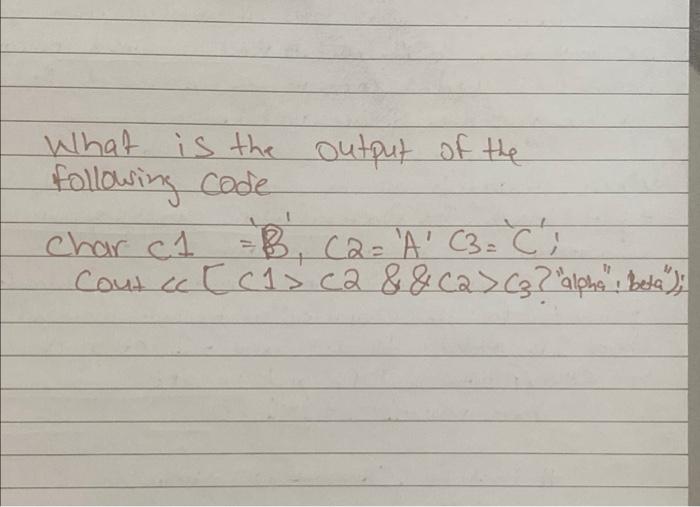 What is the output of the
following code
char c1 = 'B', c2 = 'A' c3 = 'C';
cout << [ c1 > c2 && c2 > c3 ? "alpha" : beta");